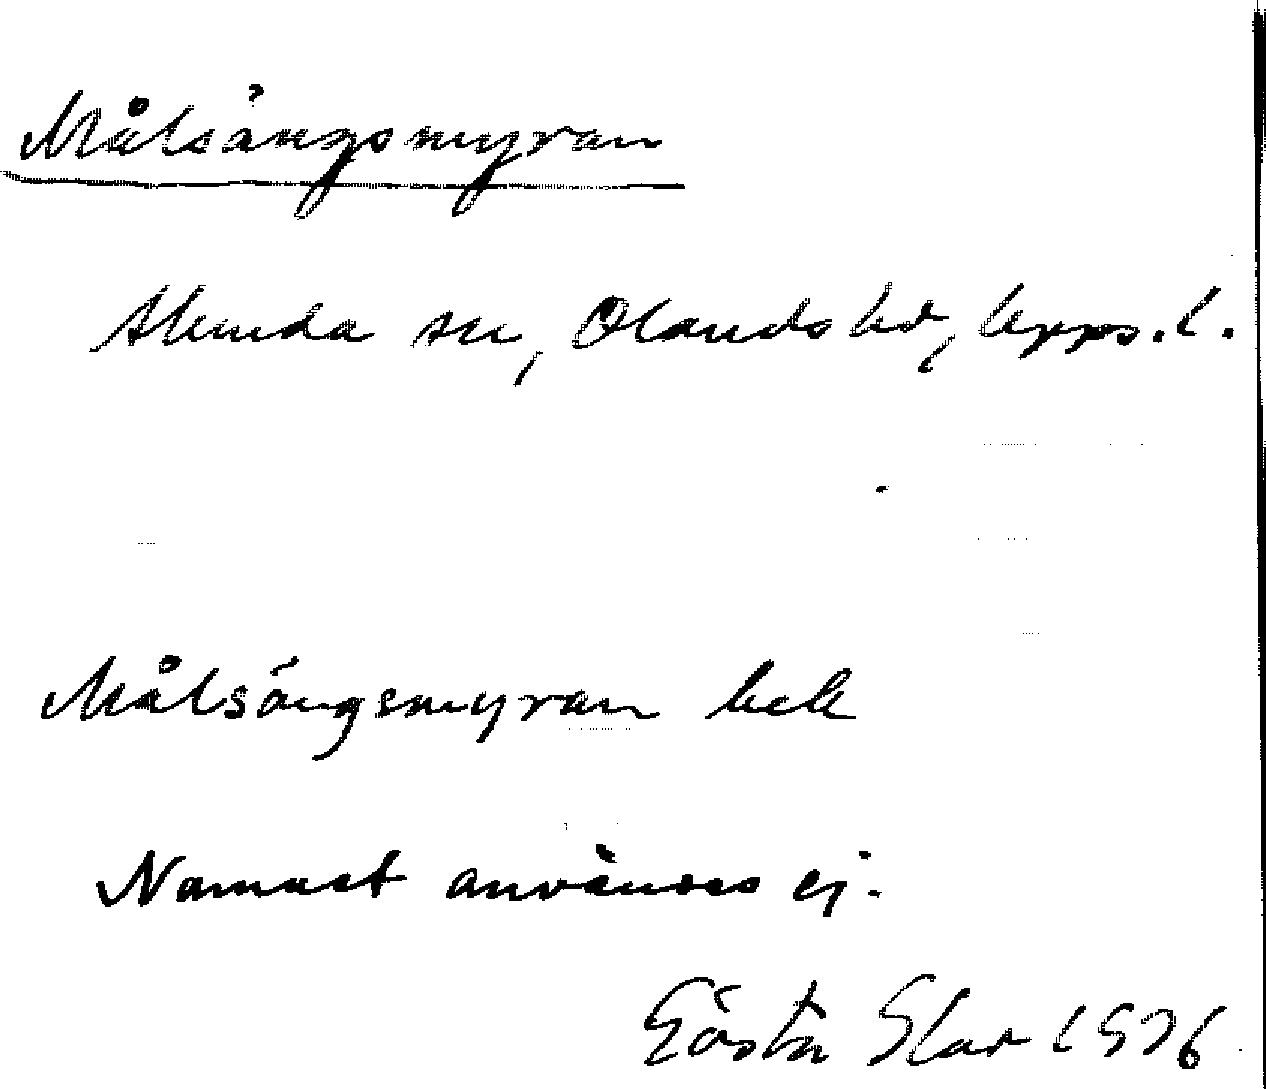 Målsängsmyran
Skunda sn, Olands hd, Upps. l.
Målsängsmyran bek
Namnet användes ej.
Gösta 1976